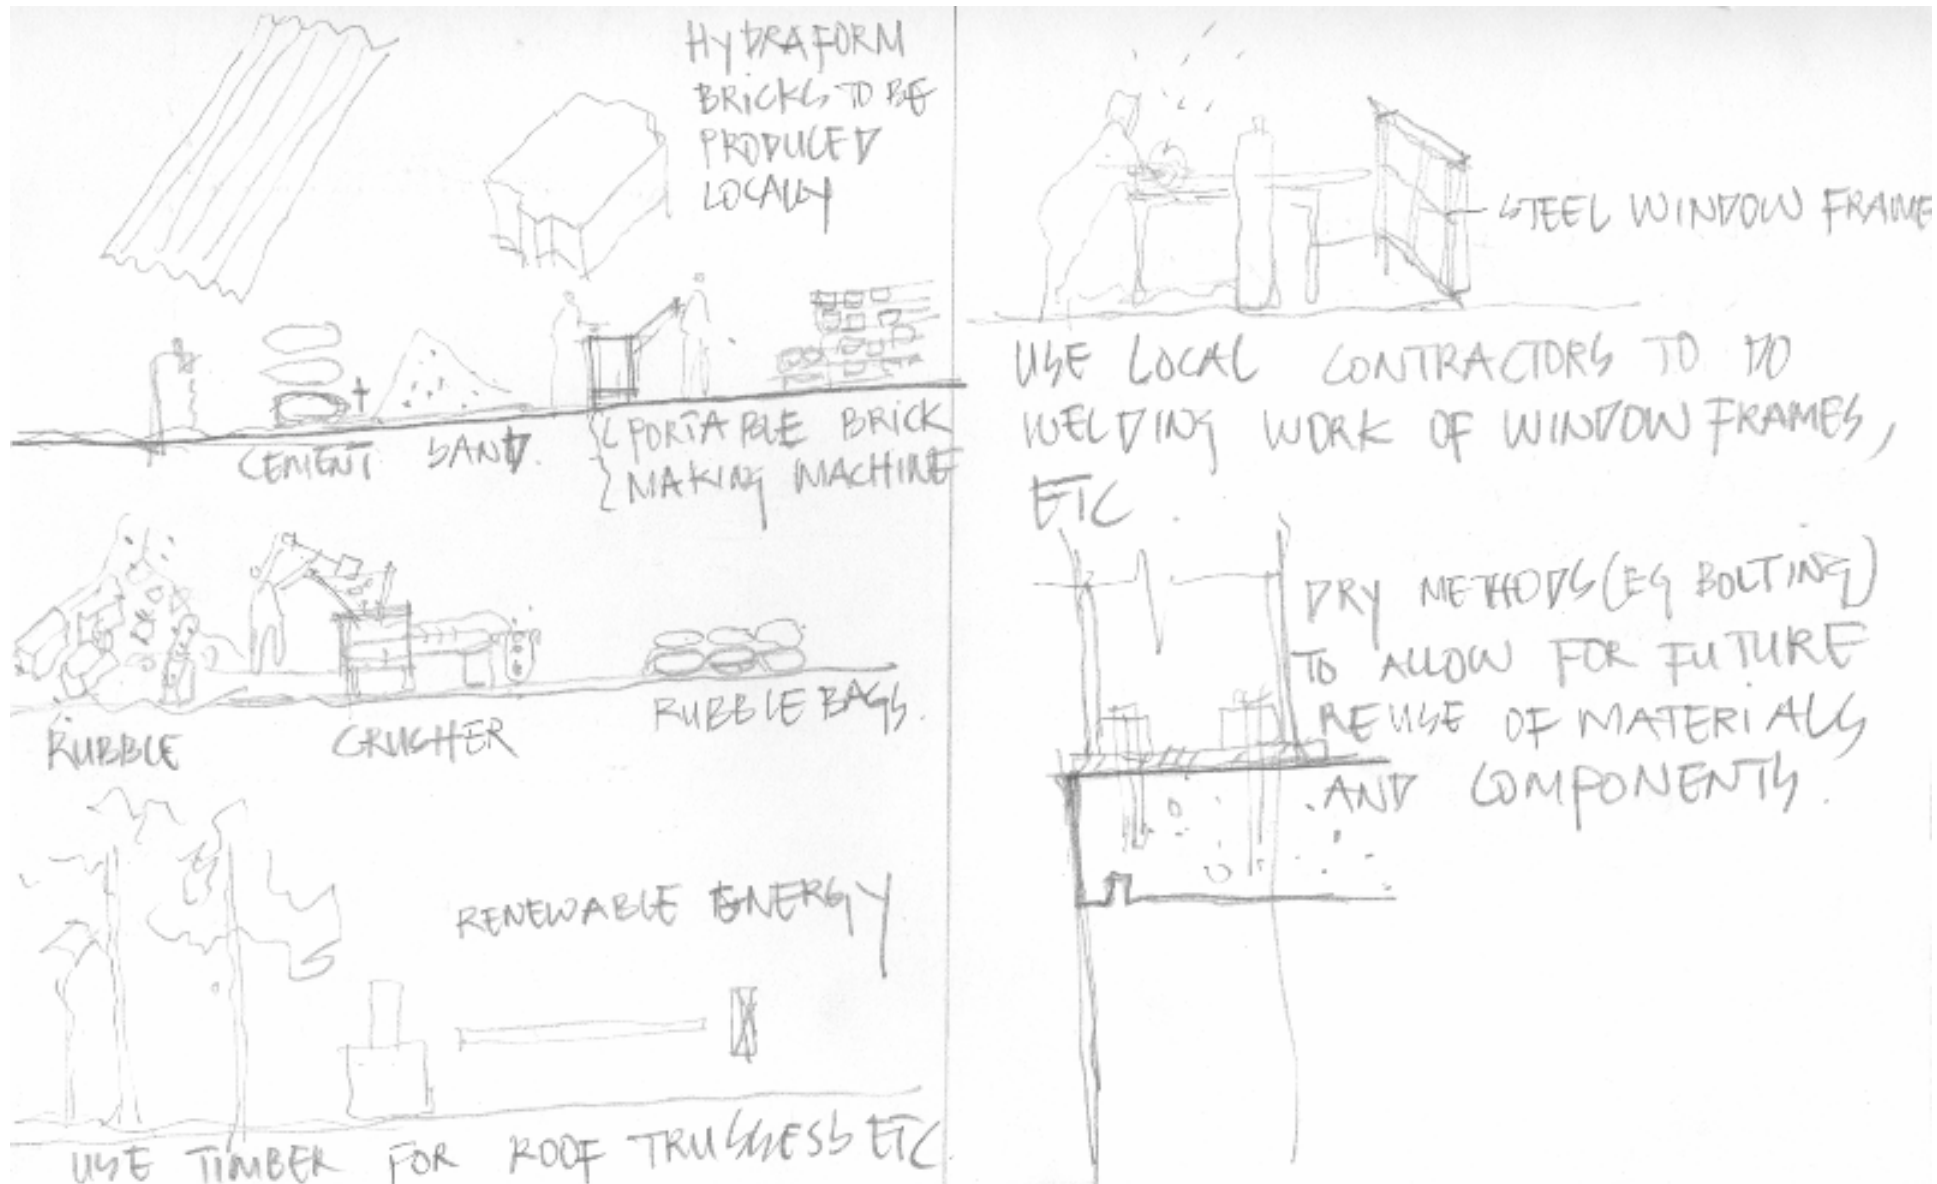 HYDRAFORM
BRICKS TO BE
PRODUCED
LOCALLY
CEMENT SAND.
PORTABLE BRICK
MAKING MACHINE
RUBBLE CRUSHER RUBBLE BAGS.
RENEWABLE ENERGY
USE TIMBER FOR ROOF TRUSSESS ETC
STEEL WINDOW FRAME
USE LOCAL CONTRACTORS TO DO
WELDING WORK OF WINDOW FRAMES,
ETC.
DRY METHODS (EG BOLTING)
TO ALLOW FOR FUTURE
REUSE OF MATERIALS
AND COMPONENTS.